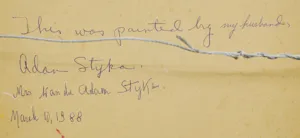 This was painted by my husband.
Adam Styka.
Mrs Wanda Adam Styka.
March 11, 1988